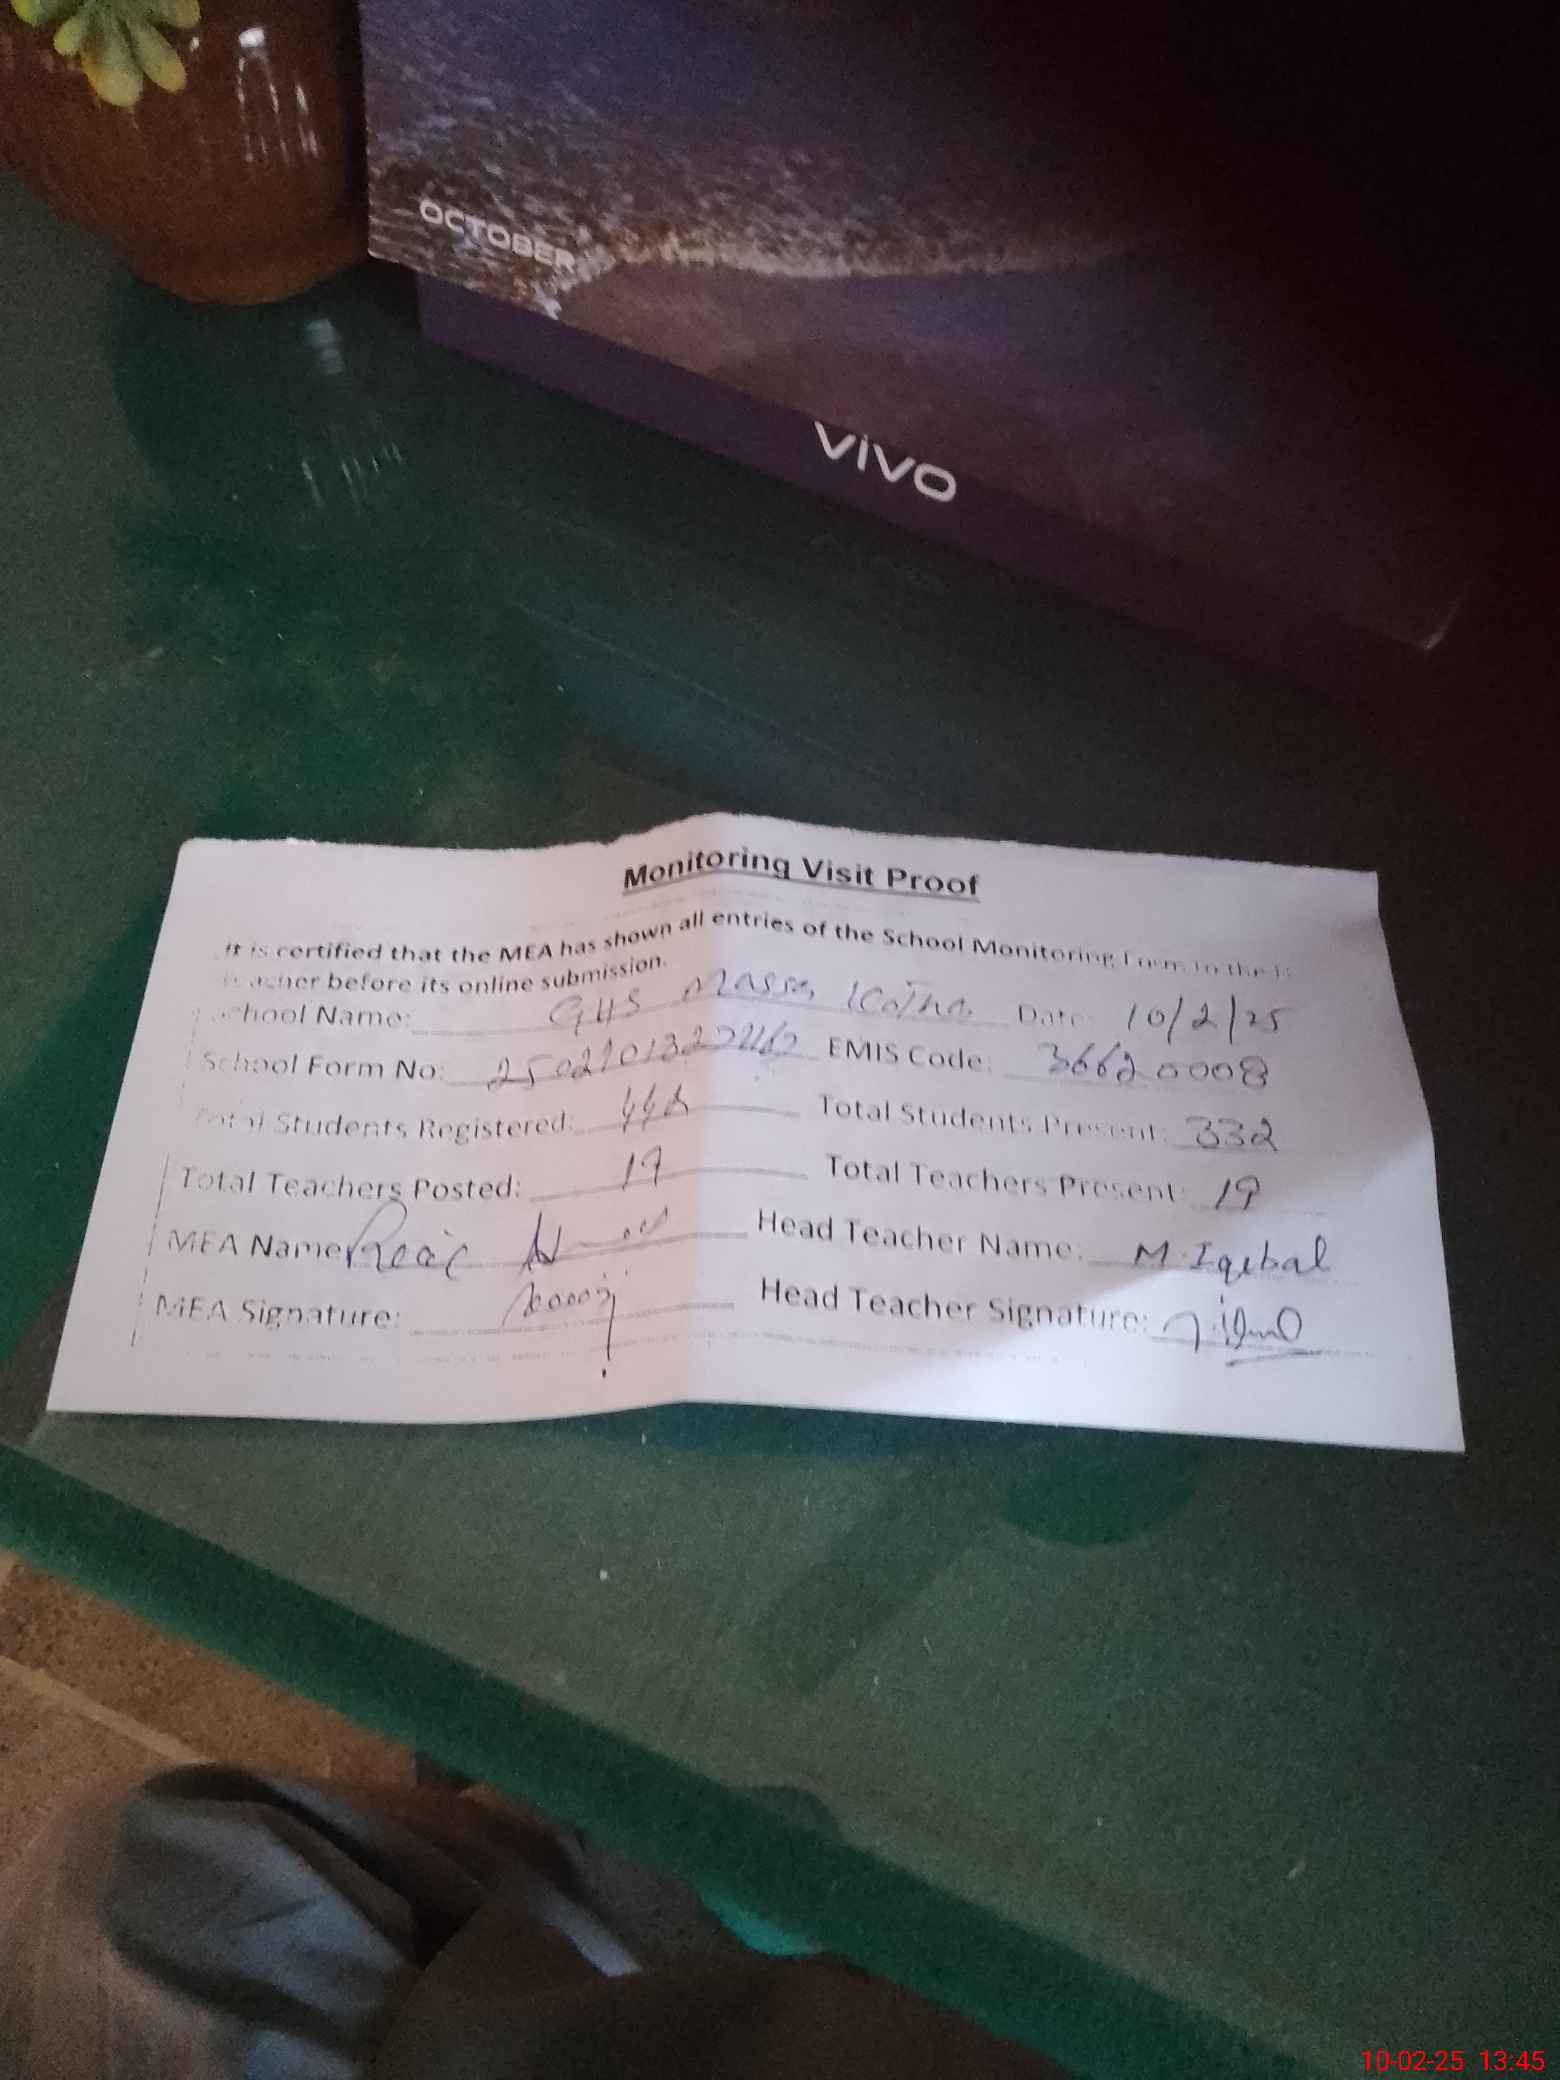 OCTOBER
vivo
Monitoring Visit Proof
It is certified that the MEA has shown all entries of the School Monitoring Form to the
teacher before its online submission.
School Name: GHS Massa Kotha Date: 10/2/25
School Form No: EMIS Code: 36620008
Total Students Registered: Total Students Present: 332
Total Teachers Posted: 19 Total Teachers Present: 19
MEA Name: Head Teacher Name: M. Iqebal
MEA Signature: Head Teacher Signature:
10-02-25 13:45